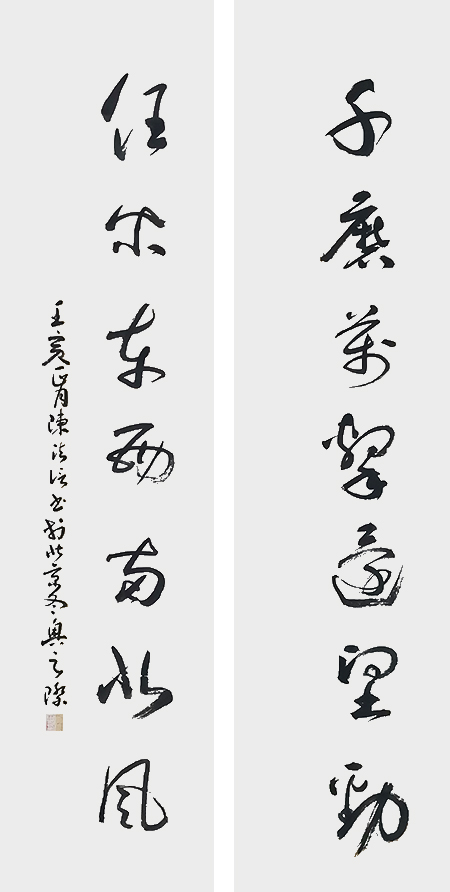 千磨萬擊還堅勁
任尔東西南北風
壬寅正月陳書於北京冬奧之際